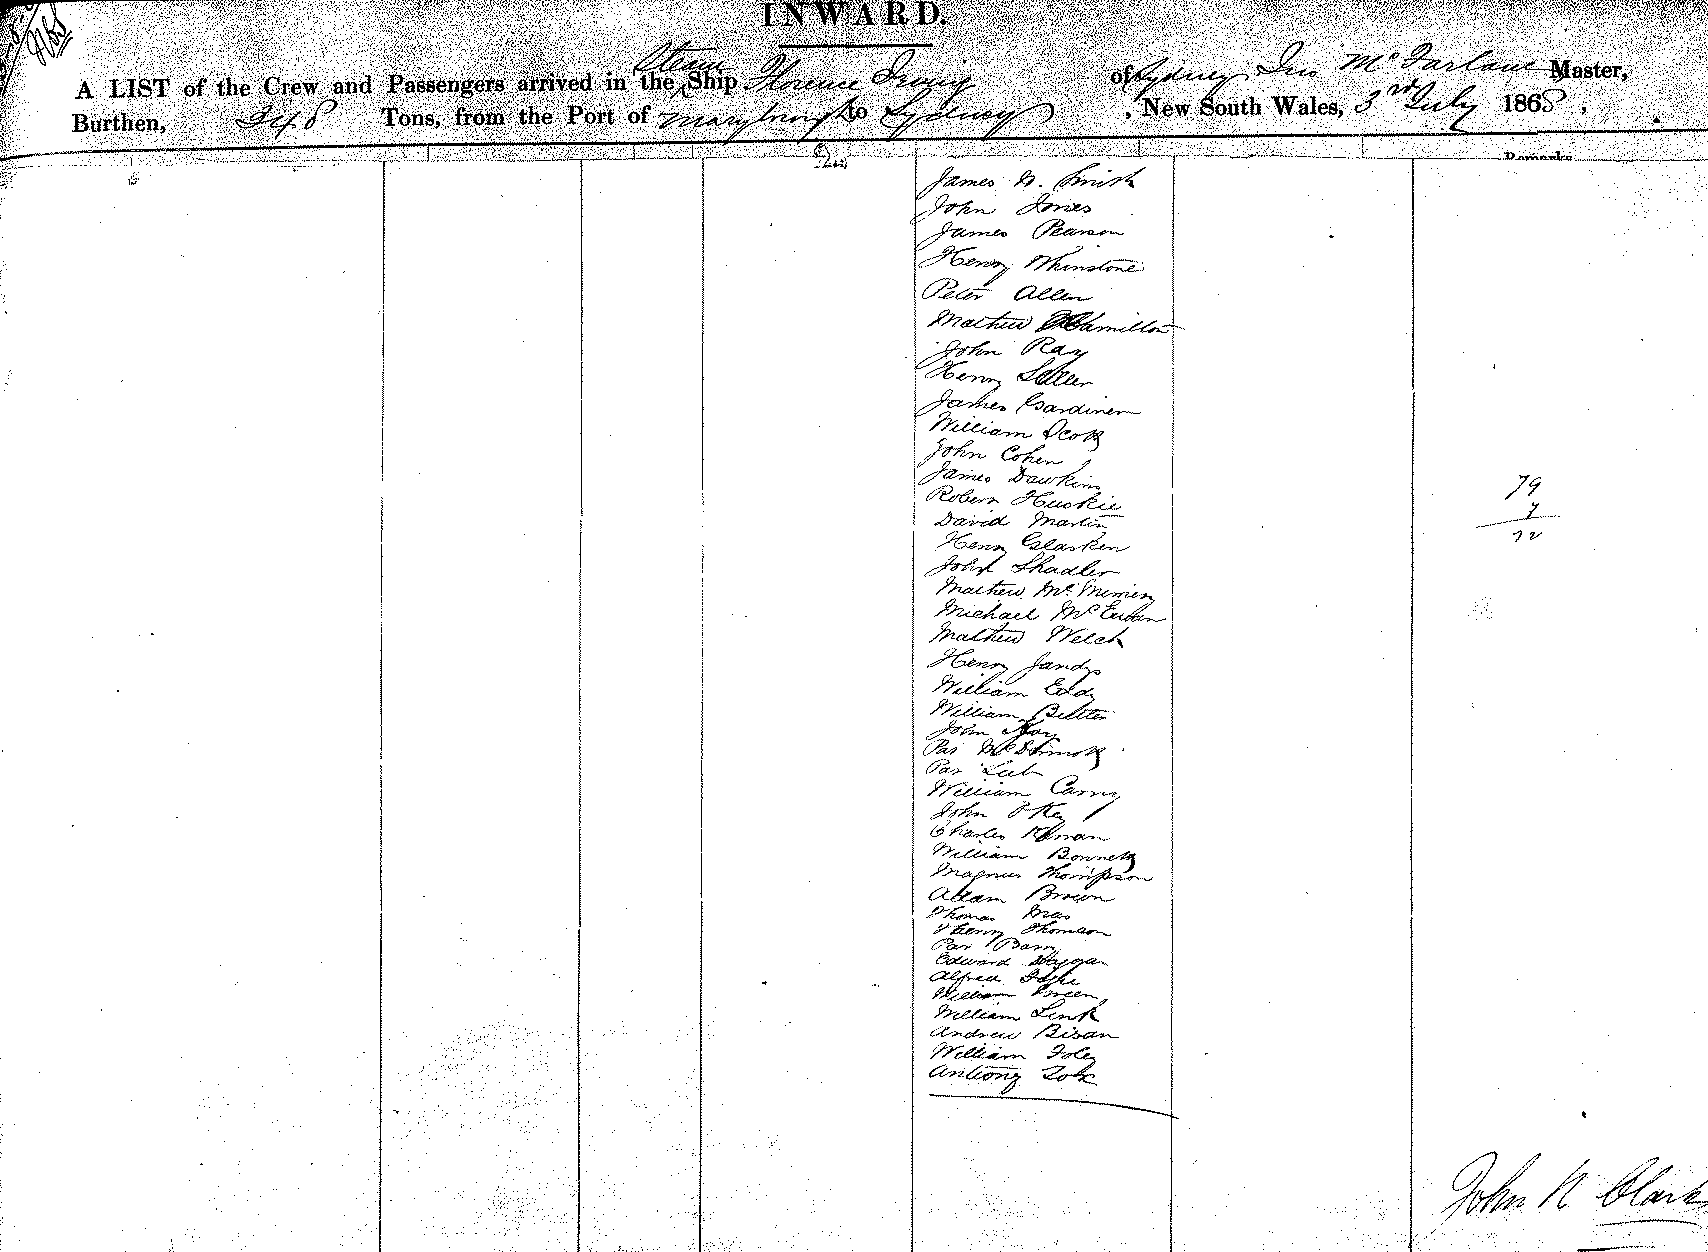 INWARD.
Steam
A LIST of the Crew and Passengers arrived in the Ship Florence Irving of Sydney Jno McFarlane Master,
Burthen, 348 Tons, from the Port of Maryborough to Sydney, New South Wales, 3rd July 1868,
Remarks
James N. Smith
John Jones
James Pearson
Henry Whinstone
Peter Allen
Mathew Hamilton
John Ray
Henry
James Gardiner
William Scott
John Cohen
James Dawkins
Robert Huskie
David Martin
79
7
72
Henry Clarken
John Shadler
Mathew
Michael McEwan
Mathew Welch
Henry Jandy
William Eddy
William
John
Pat McDermott
Pat
William Carny
John O'Key
Charles
William Bonnett
Magnus Thompson
Adam Brown
Thomas
Henry Thomson
Pat Barry
Edward
Alfred
William Green
William Link
Andrew Bivan
William Foley
Antiony
John N Clark